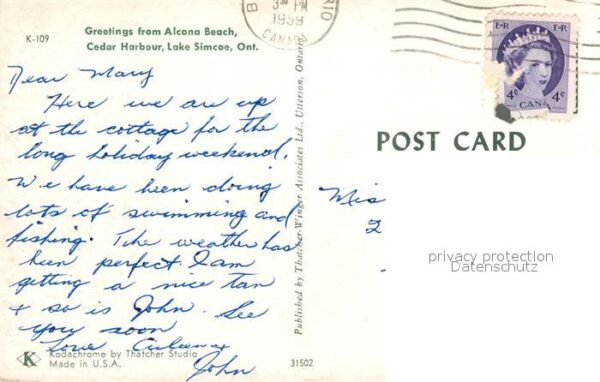 K-109
Greetings from Alcona Beach,
Cedar Harbour, Lake Simcoe, Ont.
3 PM
1959
CANADA
E·R E·R
4¢ 4¢
CANADA
Dear Mary
Here we are up
at the cottage for the
long holiday weekend.
We have been doing
lots of swimming and
fishing. The weather has
been perfect. I am
getting a nice tan
& so is John. See
you soon
Love
John
Published by Thatcher-Winger Associates Ltd., Utterson, Ontario
POST CARD
Mis
2
privacy protection
Datenschutz
K
Kodachrome by Thatcher Studio
Made in U.S.A.
31502